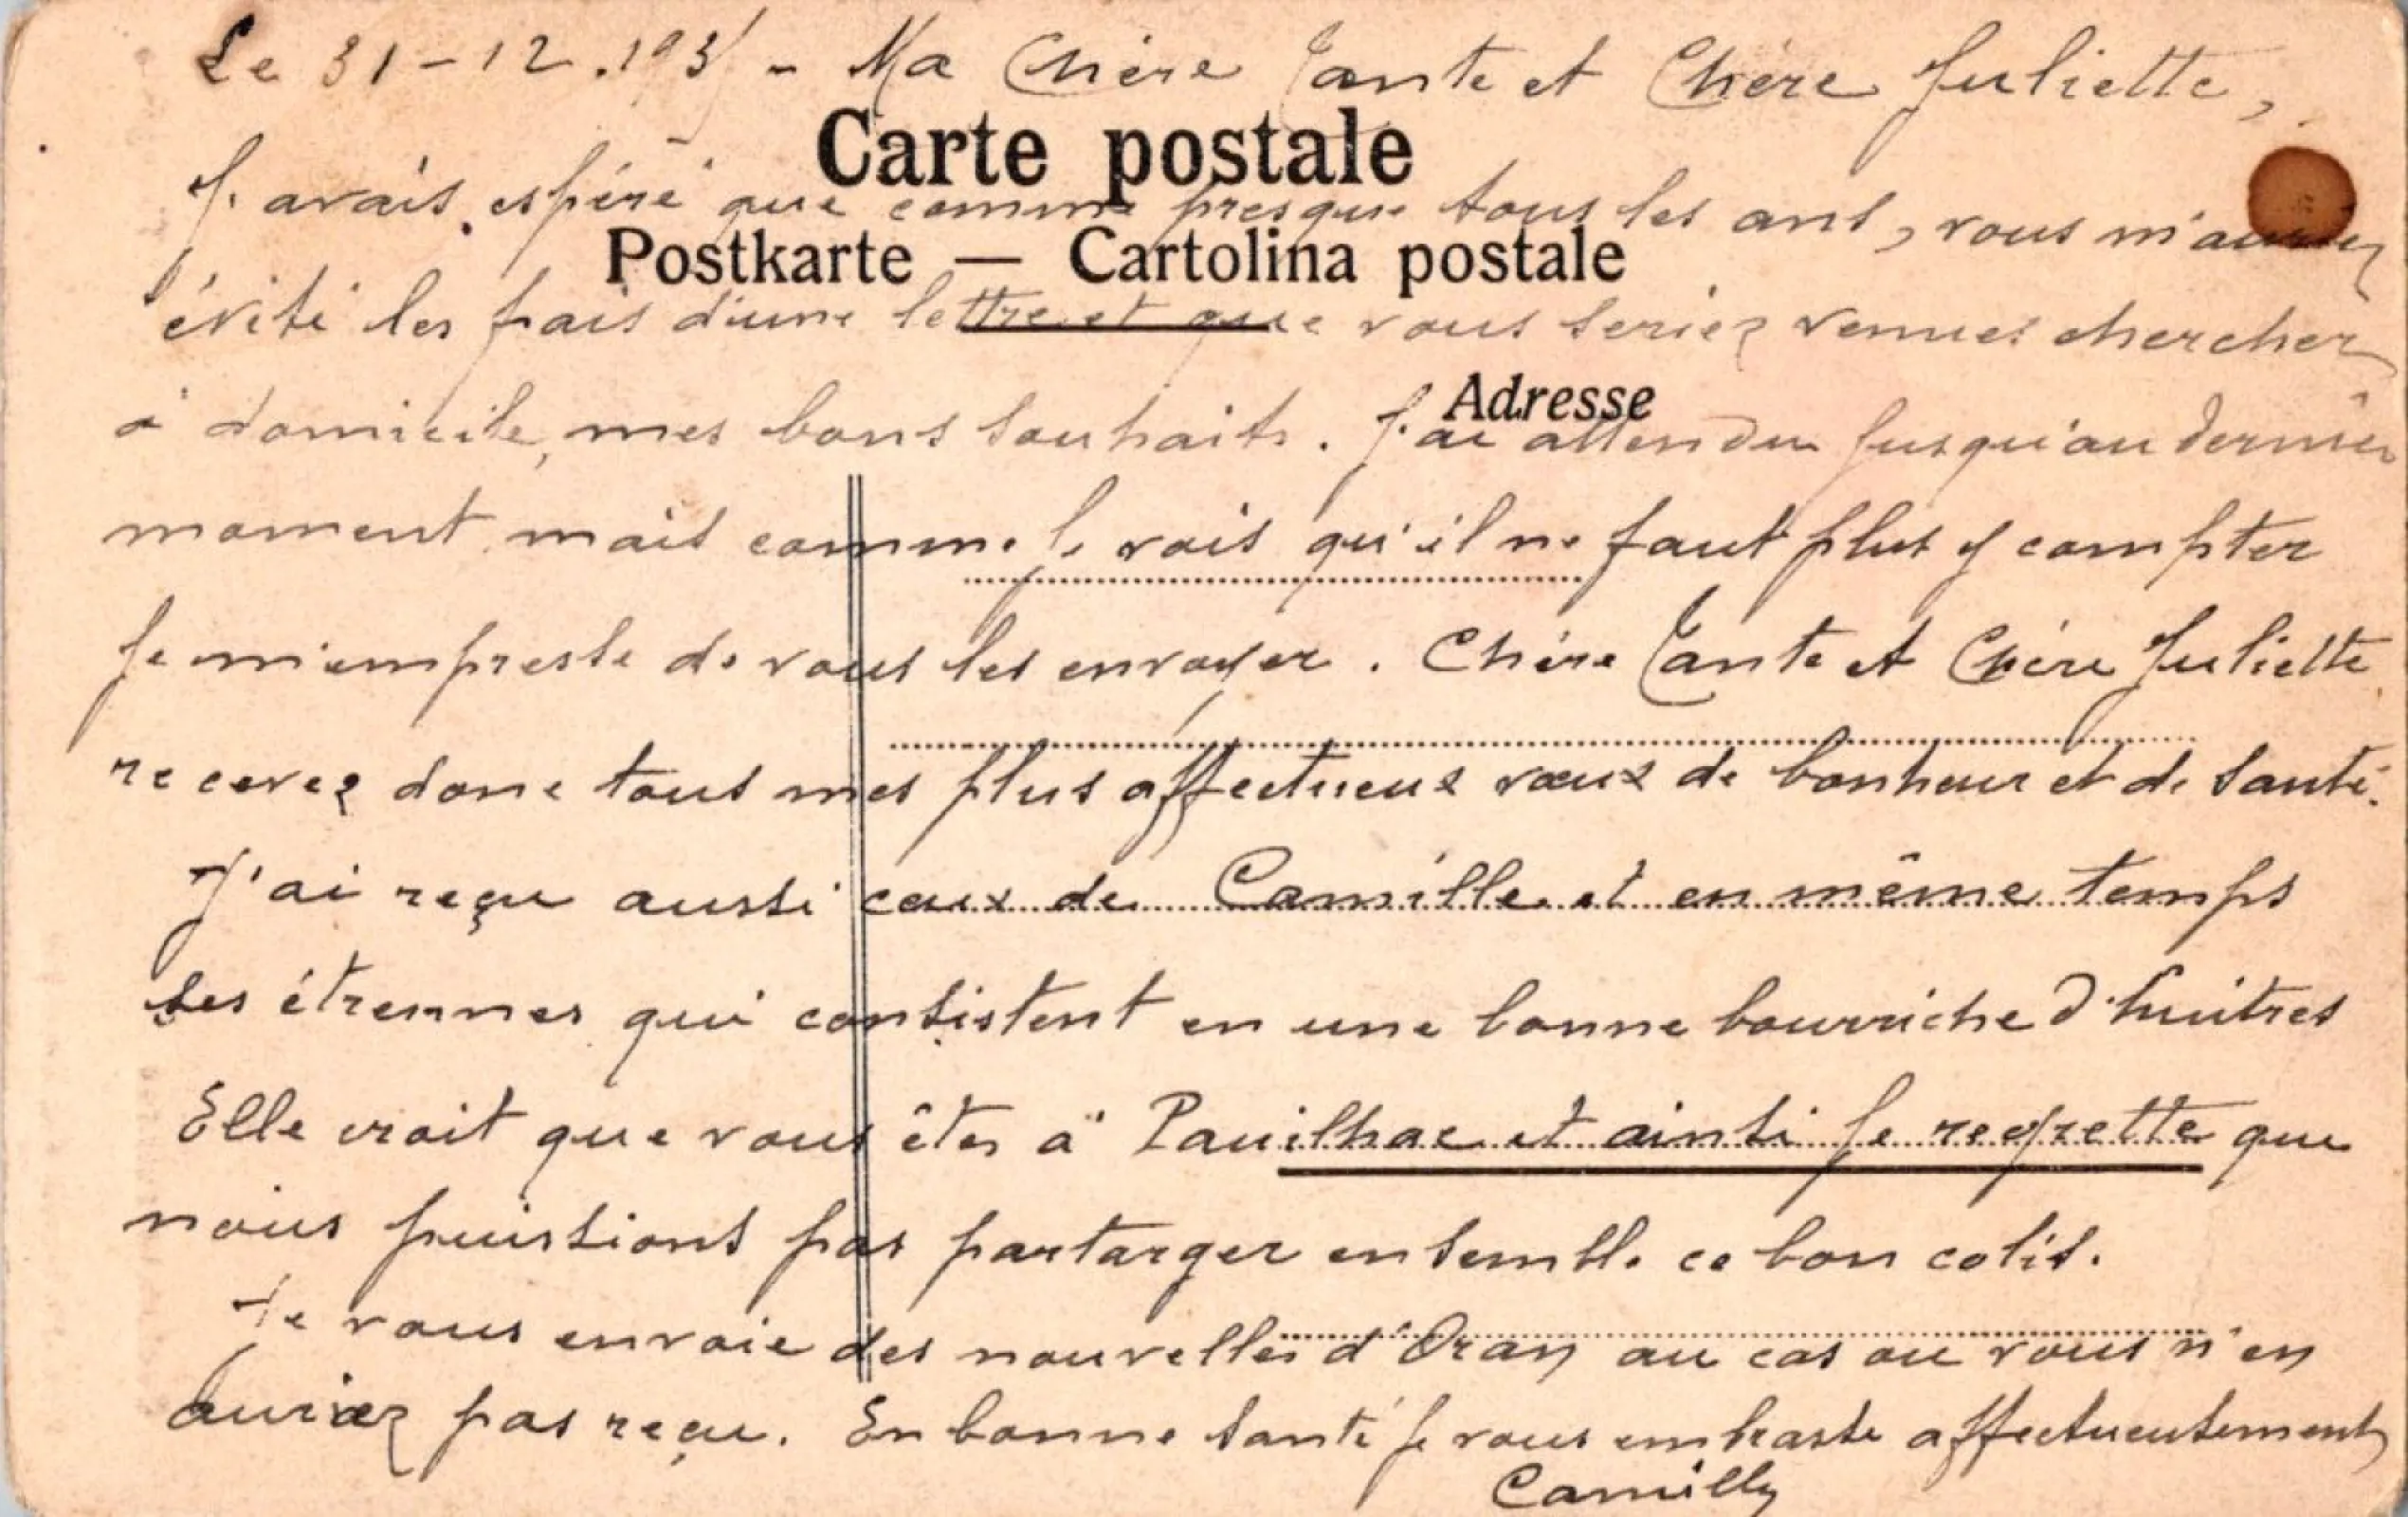 Le 31-12.193/ - Ma Chère Tante et Chère Juliette,
Carte postale
J'avais espéré que comme presque tous les ans, vous m'auriez
Postkarte — Cartolina postale
évité les frais d'une lettre et que vous seriez venues chercher
Adresse
à domicile, mes bons souhaits. J'ai attendu jusqu'au dernier
moment mais comme je vois qu'il ne faut plus y compter
je m'empresse de vous les envoyer. Chère Tante et Chère Juliette
recevez donc tous mes plus affectueux vœux de bonheur et de santé.
J'ai reçu aussi ceux de Camille et en même temps
ses étrennes qui consistent en une bonne bourriche d'huitres
Elle croit que vous êtes à Pauilhac et ainsi je regrette que
nous puissions pas partarger ensemble ce bon colis.
Je vous envoie des nouvelles d'Oran au cas ou vous n'en
auriez pas reçu. En bonne santé je vous embrasse affectueusement
Camilly